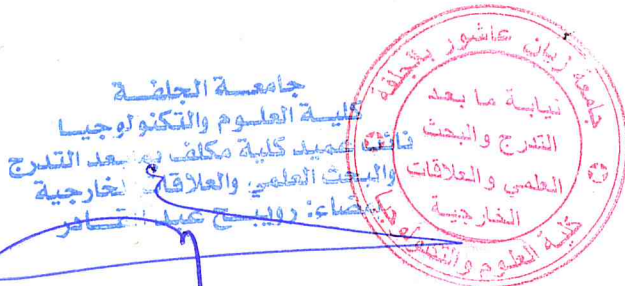 جامعة الجلفة
كلية العلوم والتكنولوجيا
نائب عميد كلية مكلف بما بعد التدرج
والبحث العلمي والعلاقات الخارجية
إمضاء: رويبح عبد القادر
جامعة زيان عاشور بالجلفة
نيابة ما بعد
التدرج والبحث
العلمي والعلاقات
الخارجية
كلية العلوم والتكنولوجيا